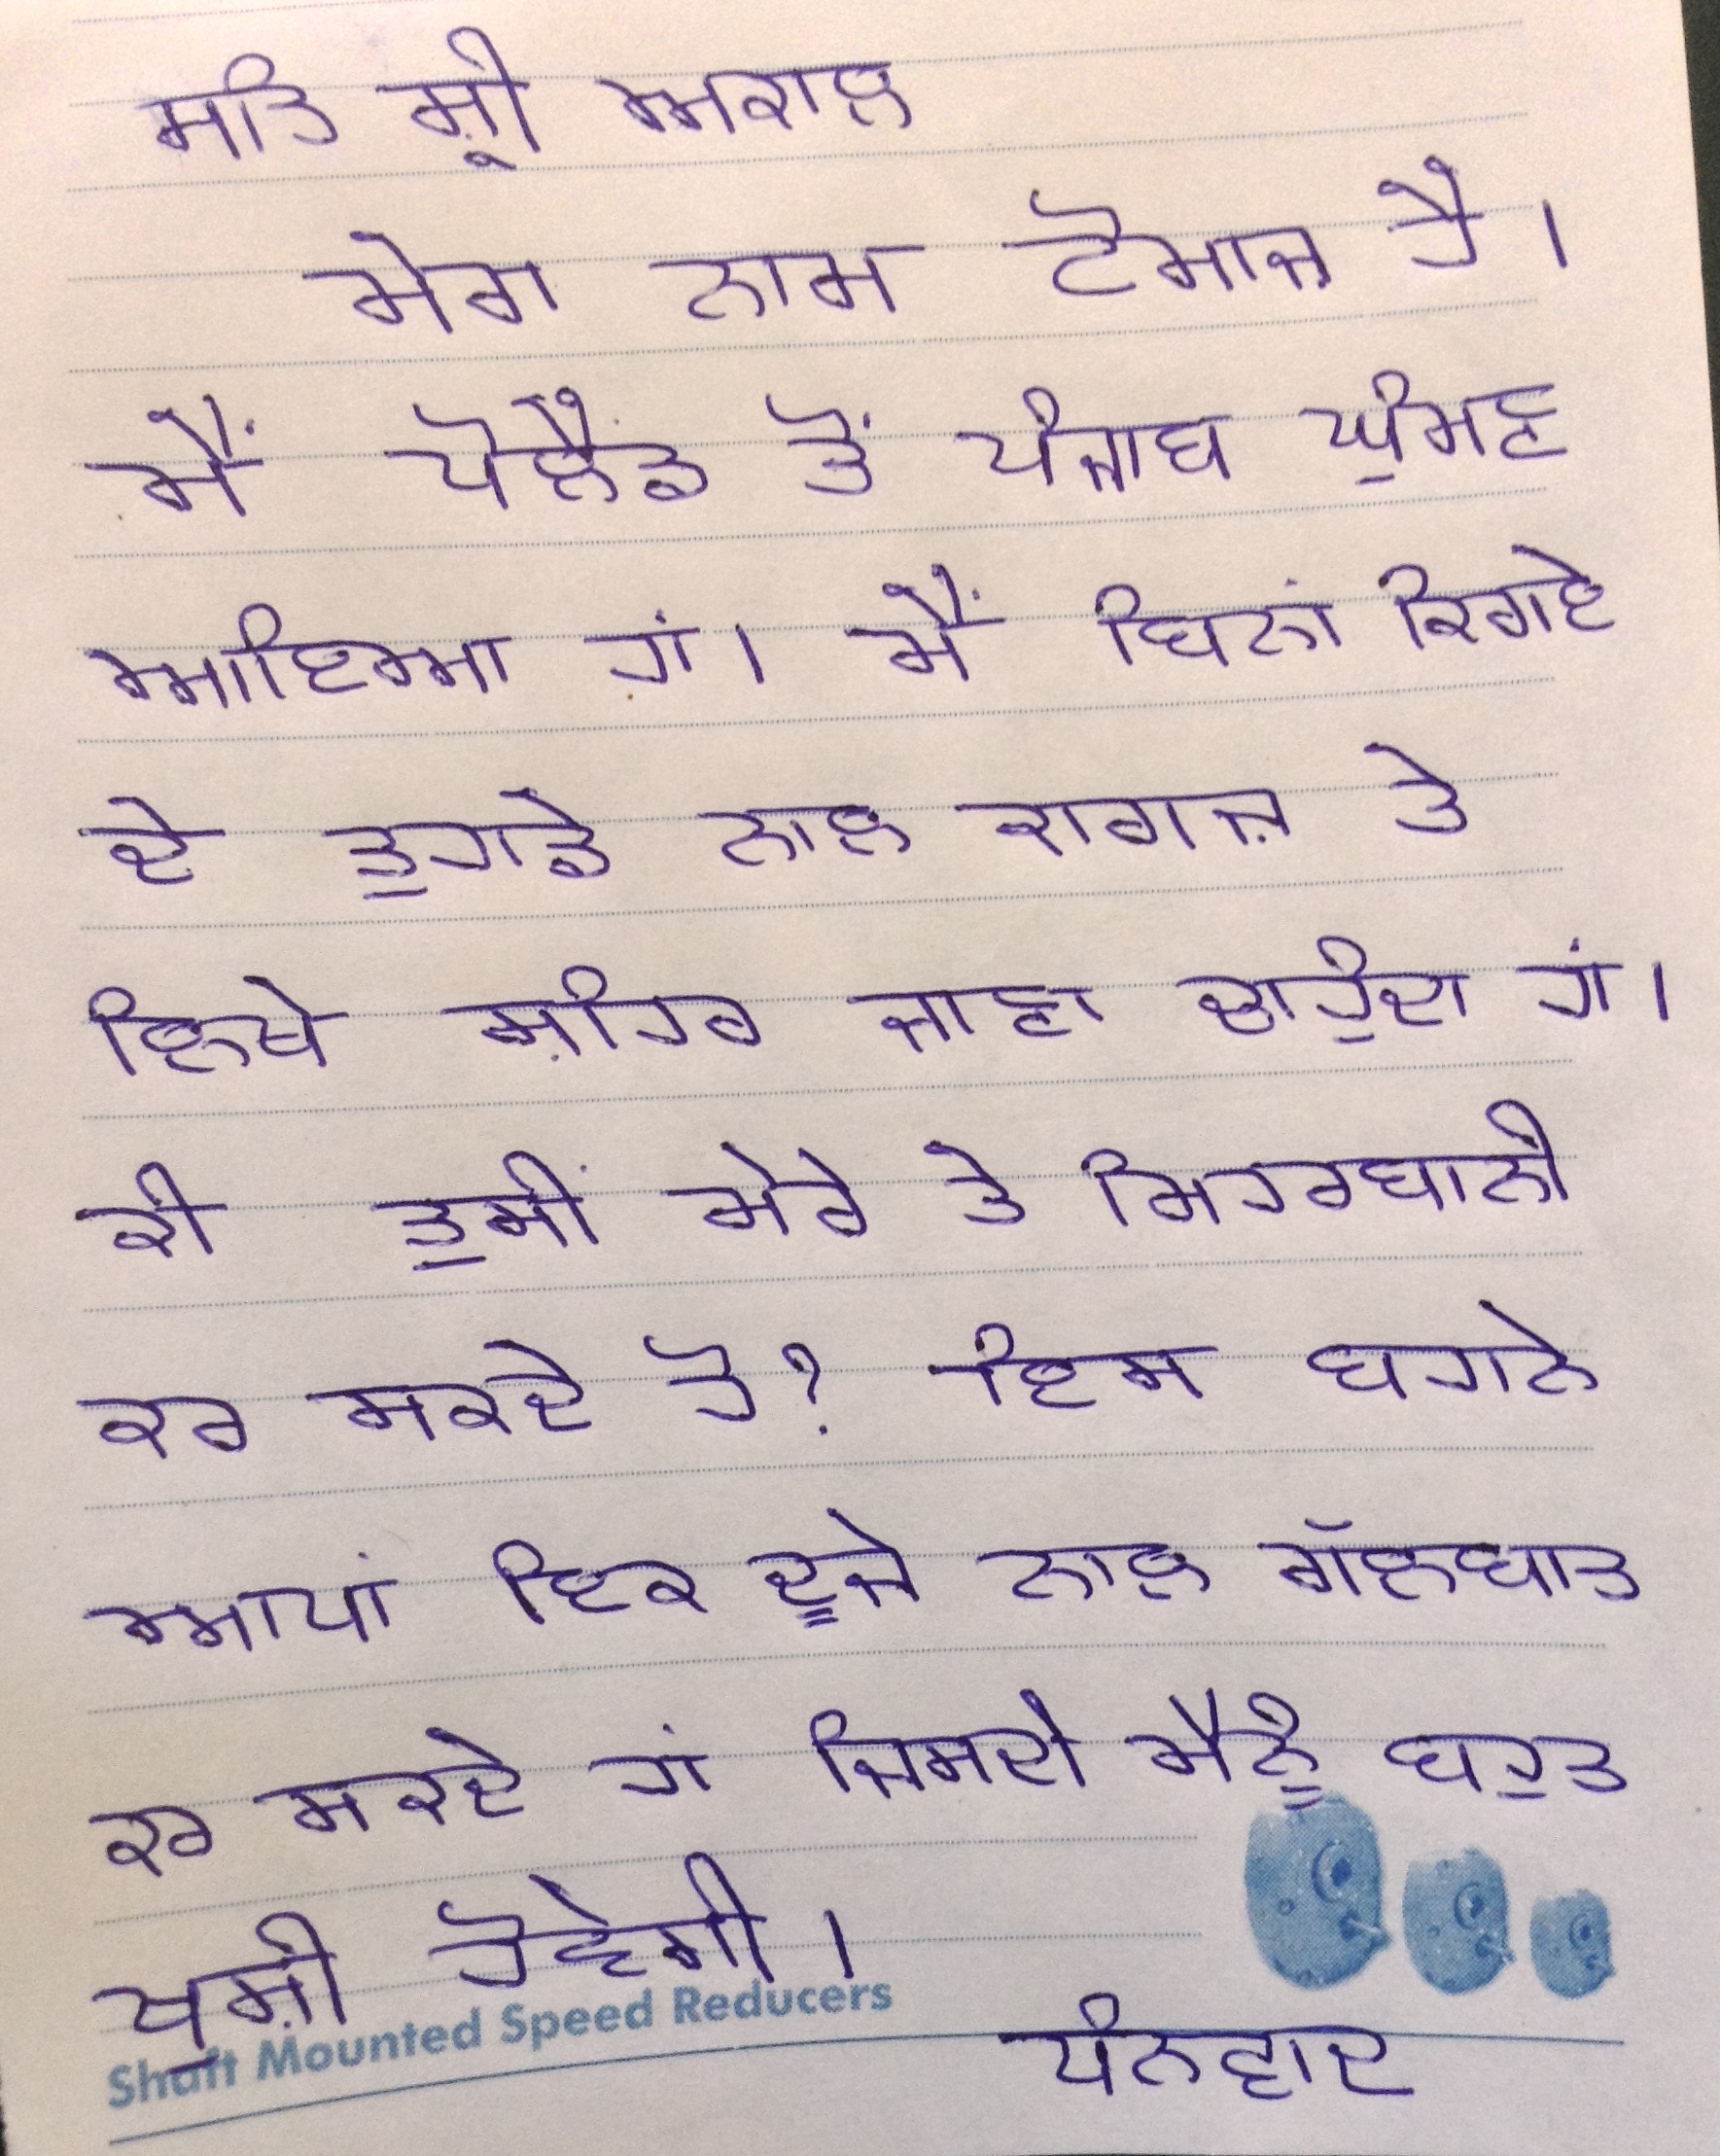 ਸਤਿ ਸ਼੍ਰੀ ਅਕਾਲ
ਮੇਰਾ ਨਾਮ ਟੋਮਾਜ਼ ਹੈ।
ਮੈਂ ਪੋਲੈਂਡ ਤੋਂ ਪੰਜਾਬ ਘੁੰਮਣ
ਆਇਆ ਹਾਂ। ਮੈਂ ਬਿਨਾਂ ਕਿਰਾਏ
ਦੇ ਤੁਹਾਡੇ ਨਾਲ ਕਾਗਜ਼ ਤੇ
ਲਿਖੇ ਸ਼ਹਿਰ ਜਾਣਾ ਚਾਹੁੰਦਾ ਹਾਂ।
ਕੀ ਤੁਸੀਂ ਮੇਰੇ ਤੇ ਮਿਹਰਬਾਨੀ
ਕਰ ਸਕਦੇ ਹੋ? ਇਸ ਬਹਾਨੇ
ਆਪਾਂ ਇਕ ਦੂਜੇ ਨਾਲ ਗੱਲਬਾਤ
ਕਰ ਸਕਦੇ ਹਾਂ ਜਿਸਦੀ ਮੈਨੂੰ ਬਹੁਤ
ਖੁਸ਼ੀ ਹੋਵੇਗੀ।
Shaft Mounted Speed Reducers
ਧੰਨਵਾਦ